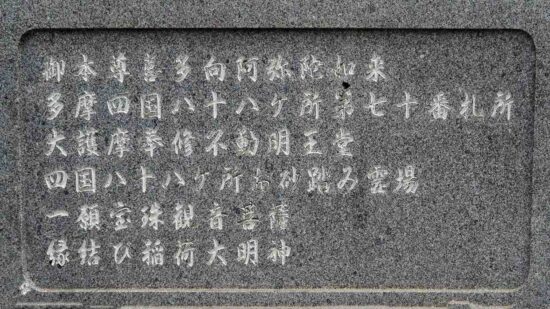 御本尊喜多向阿弥陀如来
多摩四国八十八ケ所第七十番札所
大護摩奉修不動明王堂
四国八十八ケ所お砂踏み霊場
一願宝珠観音菩薩
縁結び稲荷大明神